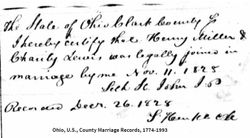 The State of Ohio Clark County Ss
I hereby certify that Henry Miller &
Charity Lewis was legally joined in
marriage by me Nov. 11. 1828
John J.P.
Recorded Decr. 26. 1828
Ohio, U.S., County Marriage Records, 1774-1993